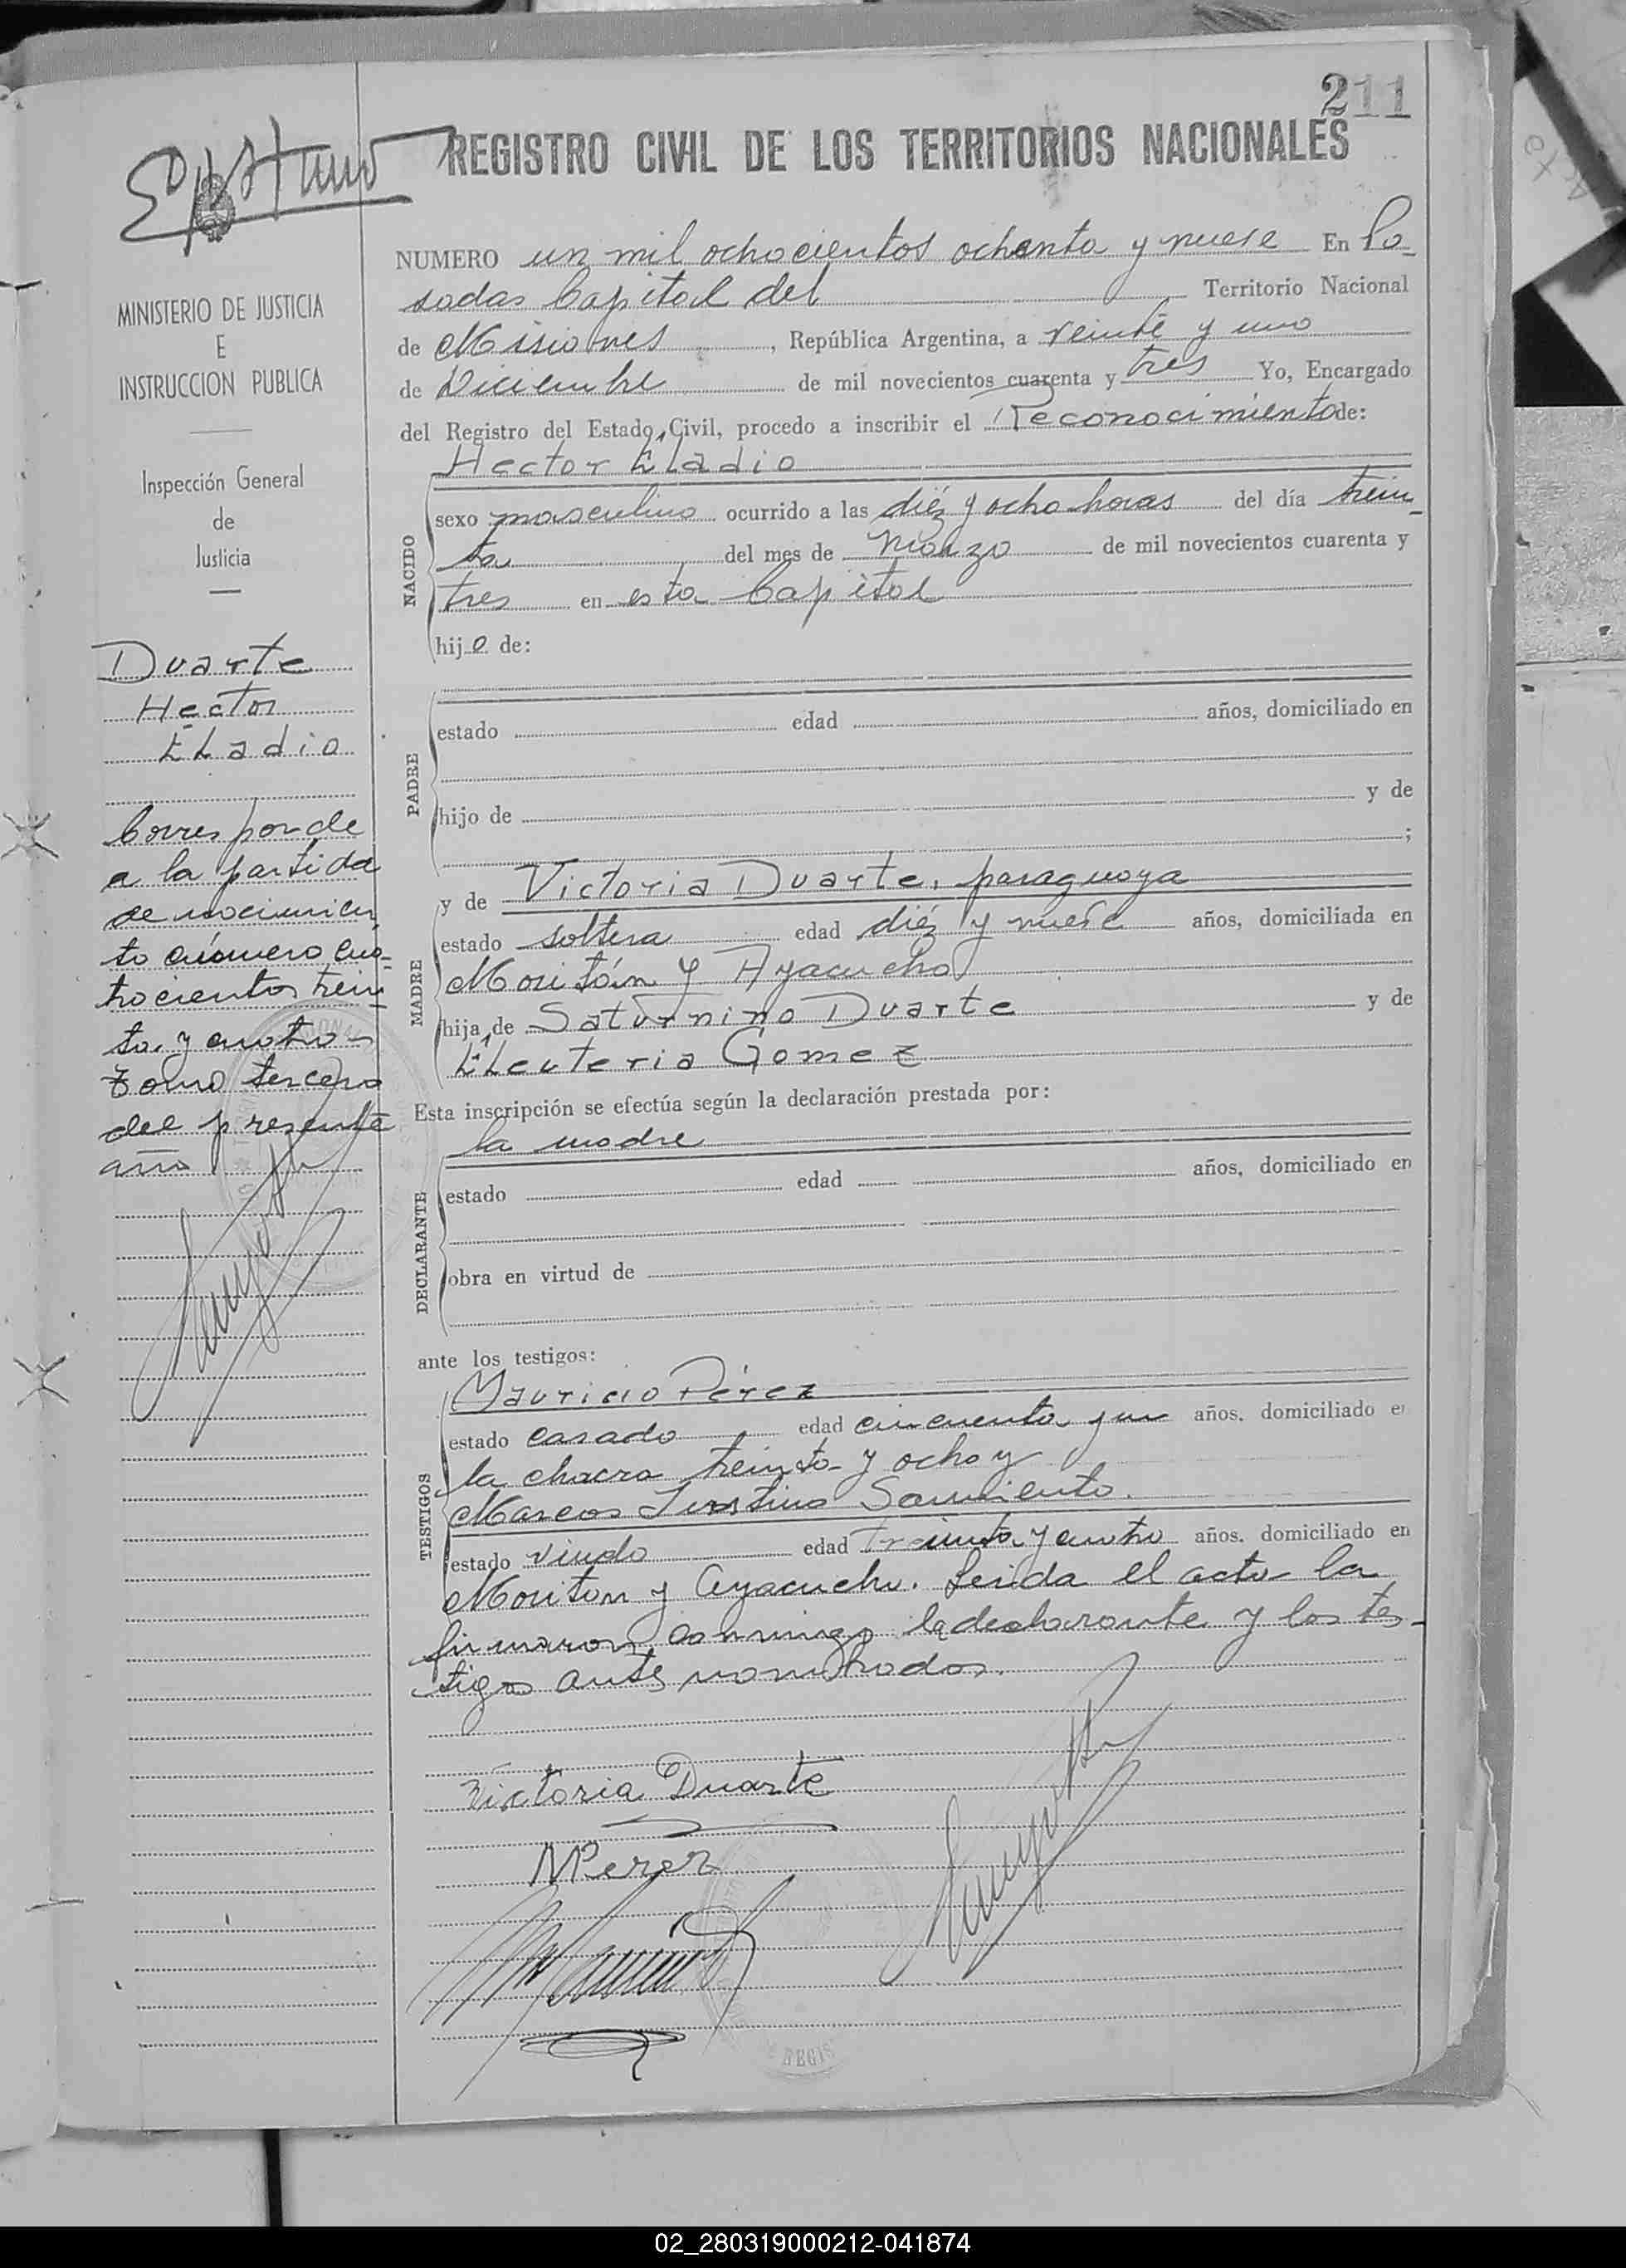 211
REGISTRO CIVIL DE LOS TERRITORIOS NACIONALES
MINISTERIO DE JUSTICIA
E
INSTRUCCION PUBLICA
Inspección General
de
Justicia
Duarte
Hector
Eladio
Corresponde
a la partida
de nacimien
to número cua-
trocientos trein
ta y cuatro
tomo tercero
del presente
año
NUMERO un mil ochocientos ochenta y nueve En Po-
sadas Capital del Territorio Nacional
de Misiones, República Argentina, a veinte y uno
de Diciembre de mil novecientos cuarenta y tres Yo, Encargado
del Registro del Estado Civil, procedo a inscribir el Reconocimiento de:
Hector Eladio
NACIDO
sexo masculino ocurrido a las diéz y ocho horas del día trein-
ta del mes de Marzo de mil novecientos cuarenta y
tres en esta Capital
hijo de:
PADRE
estado edad años, domiciliado en
hijo de y de
;
MADRE
y de Victoria Duarte, paraguaya
estado soltera edad diéz y nueve años, domiciliada en
Moritán y Ayacucho
hija de Saturnino Duarte y de
Eleuteria Gomez
Esta inscripción se efectúa según la declaración prestada por:
la madre
DECLARANTE
estado edad años, domiciliado en
obra en virtud de
ante los testigos:
TESTIGOS
Mauricio Pérez
estado casado edad cincuenta y un años. domiciliado e
la chacra treinta y ocho y
Marcos Justino Sarmiento.
estado viudo edad treinta y cuatro años. domiciliado en
Moritan y Ayacucho. Leida el acta la
firmaron conmigo la declarante y los tes-
tigos ante nombrados.
Victoria Duarte
M Perez
REGIS
02_280319000212-041874